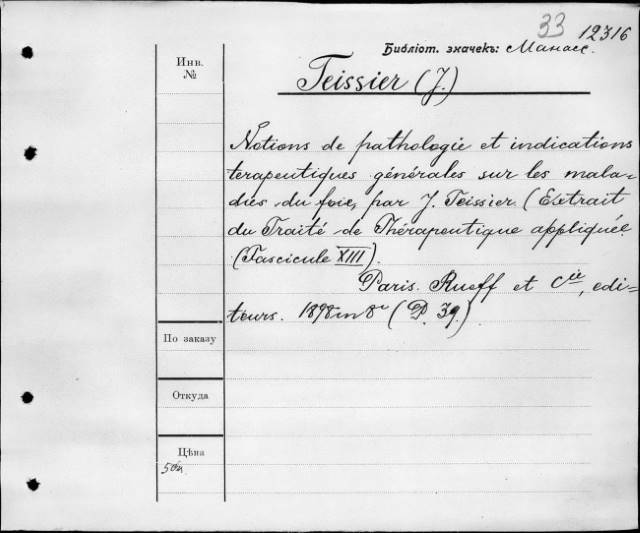 33 12316
Библіот. значекъ: Манасс.
Инв.
№
Teissier (J.)
Notions de pathologie et indications
terapeutiques générales sur les mala-
dies du foie, par J. Teissier (Extrait
du Traité de Thérapeutique appliquée
(Fascicule XIII).
Paris. Rueff et Cie, edi-
teurs. 1898 in 8º (P. 39.)
По заказу
Откуда
Цѣна